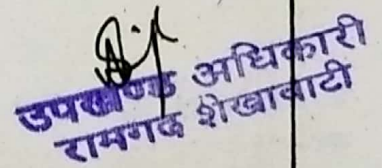 उपखण्ड अधिकारी
रामगढ शेखावाटी